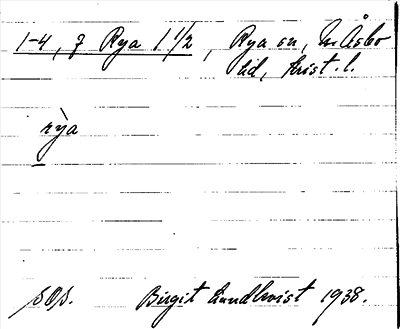 1-4, 7 Rya 1 1/2, Rya sn, N. Åsbo
hd, Krist. l.
rỳa
sos.
Birgit Lundkvist 1938.